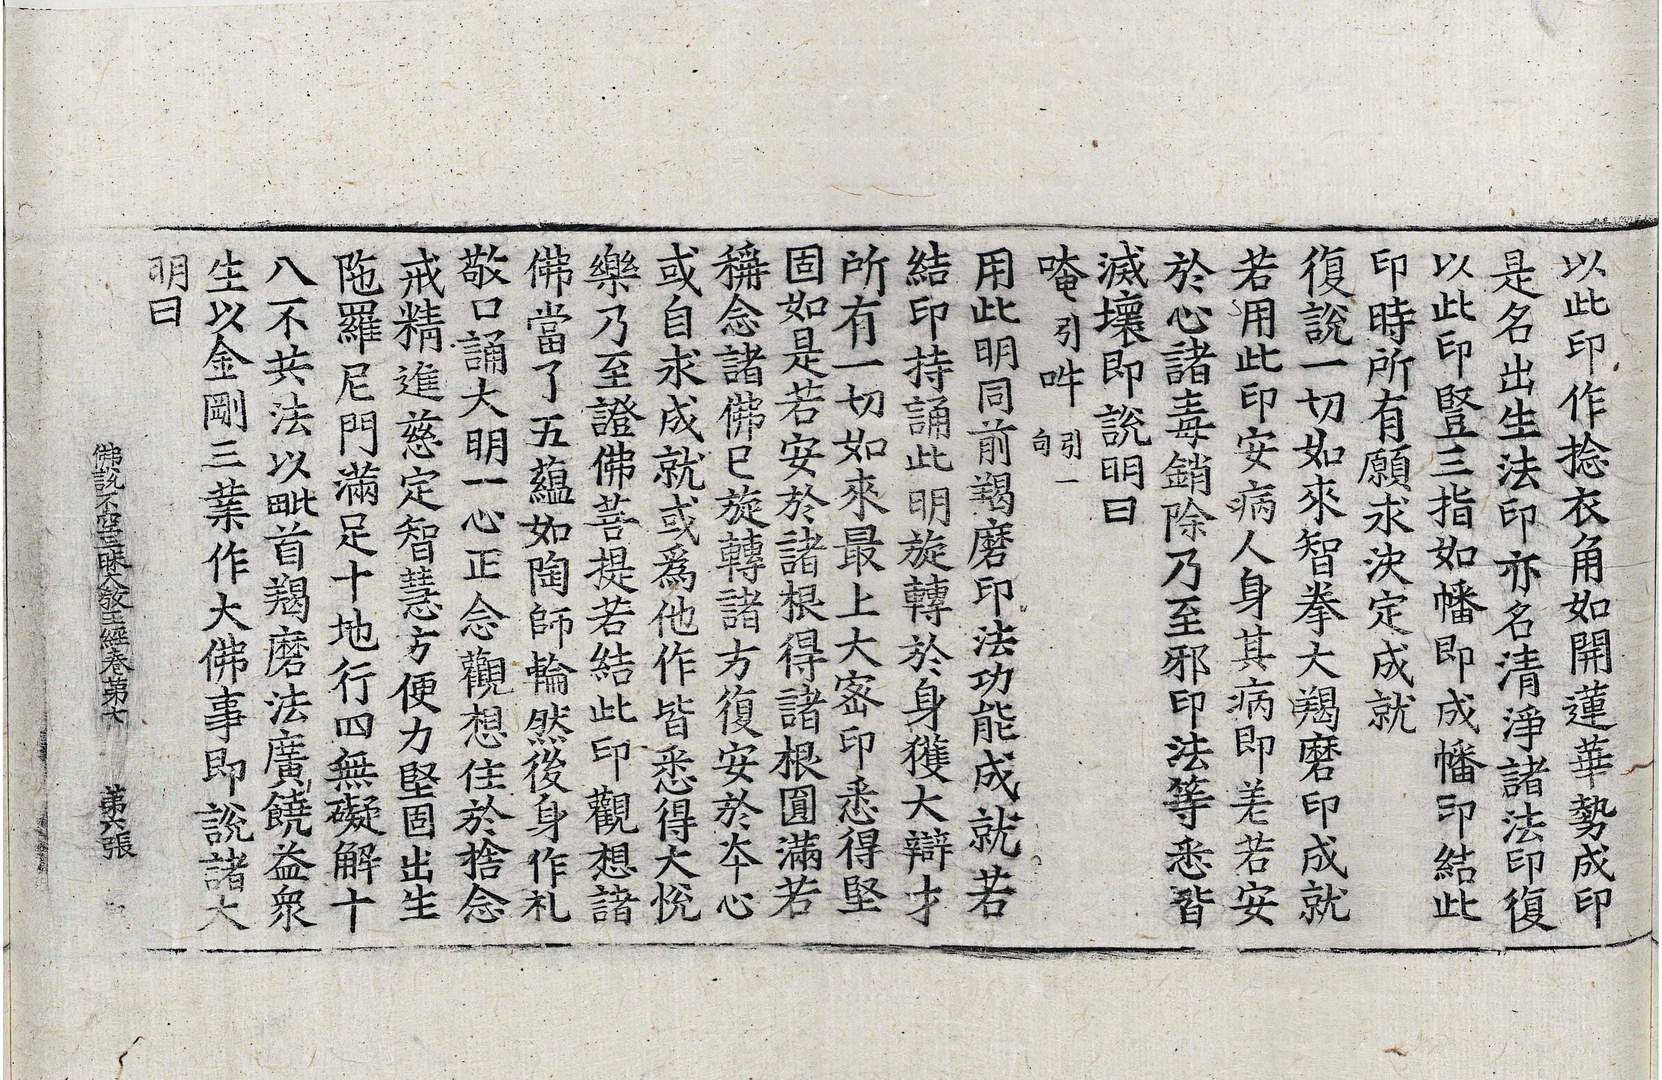 以此印作捻衣角如開蓮華勢成印
是名出生法印亦名清淨諸法印復
以此印豎三指如幡即成幡印結此
印時所有願求決定成就
復說一切如來智拳大羯磨印成就
若用此印安病人身其病即差若安
於心諸毒銷除乃至邪印法等悉皆
滅壞即說明曰
唵引吽引一句
用此明同前羯磨印法功能成就若
結印持誦此明旋轉於身獲大辯才
所有一切如來最上大密印悉得堅
固如是若安於諸根得諸根圓滿若
稱念諸佛已旋轉諸方復安於本心
或自求成就或爲他作皆悉得大悅
樂乃至證佛菩提若結此印觀想諸
佛當了五蘊如陶師輪然後身作礼
敬口誦大明一心正念觀想住於捨念
戒精進慈定智慧方便力堅固出生
陁羅尼門滿足十地行四無礙解十
八不共法以毗首羯磨法廣饒益衆
生以金剛三業作大佛事即說諸大
明曰
佛說不空三昧大教王經卷第六 第六張